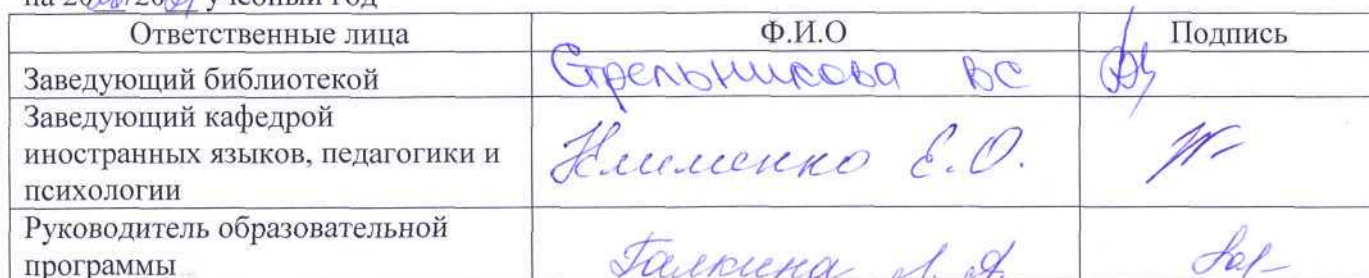 учебный год
Ответственные лица Ф.И.О Подпись
Заведующий библиотекой Стрельникова ВС
Заведующий кафедрой
иностранных языков, педагогики и Клименко Е.О.
психологии
Руководитель образовательной
программы Галкина Л. А.